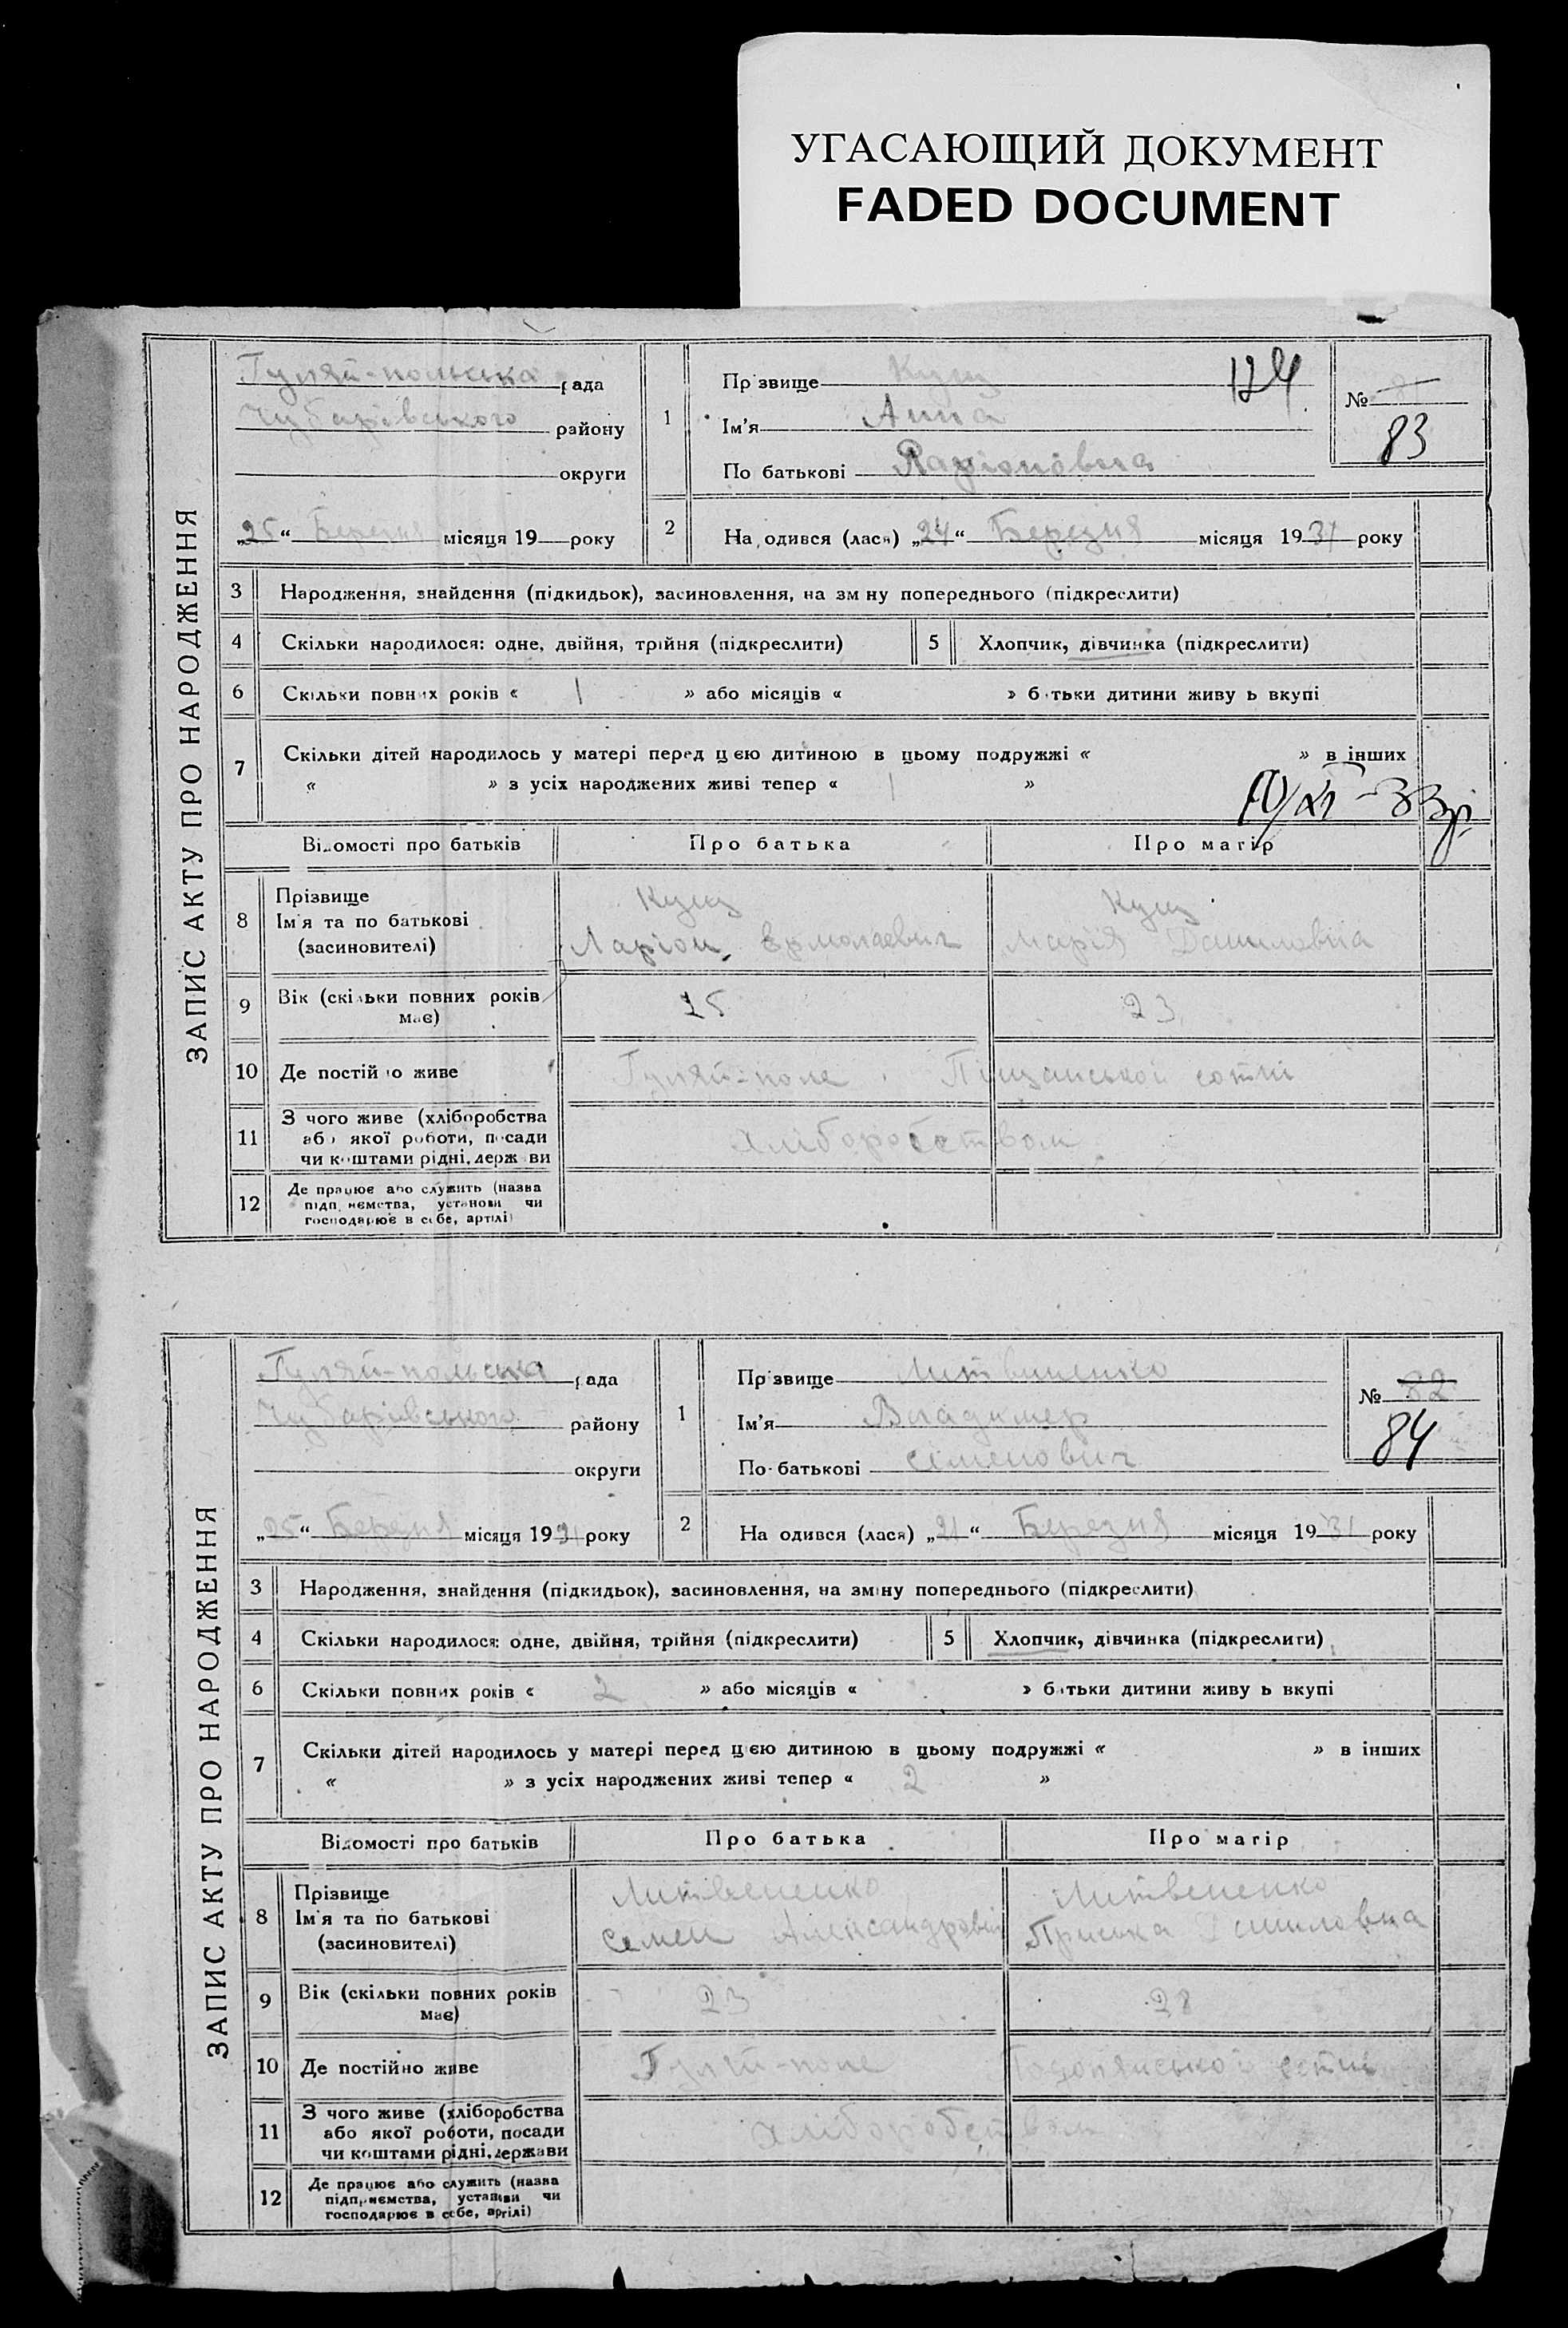 УГАСАЮЩИЙ ДОКУМЕНТ
FADED DOCUMENT
ЗАПИС АКТУ ПРО НАРОДЖЕННЯ
Гуляй-польська рада
Чубарівського району
округи
„25“ Березня місяця 19 року
1
Прізвище Кущ
124
Ім'я Анна
По батькові Ларіоновна
№
83
2 На одився (лася) „24“ Березня місяця 1931 року
3 Народження, знайдення (підкидьок), засиновлення, на зм ну попереднього (підкреслити)
4 Скільки народилося: одне, двійня, трійня (підкреслити) 5 Хлопчик, дівчинка (підкреслити)
6 Скільки повних років « 1 » або місяців « » батьки дитини живу ь вкупі
7 Скільки дітей народилось у матері перед цією дитиною в цьому подружжі « » в інших
« » з усіх народжених живі тепер « 1 »
Відомості про батьків Про батька Про матір
8 Прізвище
Ім'я та по батькові
(засиновителі)
Кущ
Ларіон Ермолаевич
Кущ
Марія Даниловна
9 Вік (скільки повних років має) 25 23
10 Де постійно живе Гуляй-поле Піщанської сотні
11 З чого живе (хліборобства
або якої роботи, посади
чи коштами рідні, держави
хліборобством
12 Де працює або служить (назва
підприємства, установи чи
господарює в себе, артілі)
ЗАПИС АКТУ ПРО НАРОДЖЕННЯ
Гуляй-польська рада
Чубарівського району
округи
„25“ Березня місяця 1931 року
1
Прізвище Литвиненко
Ім'я Владимер
По батькові Семенович
№ 82
84
2 На одився (лася) „21“ Березня місяця 1931 року
3 Народження, знайдення (підкидьок), засиновлення, на зміну попереднього (підкреслити)
4 Скільки народилося: одне, двійня, трійня (підкреслити) 5 Хлопчик, дівчинка (підкреслити)
6 Скільки повних років « 2 » або місяців « » батьки дитини живу ь вкупі
7 Скільки дітей народилось у матері перед цією дитиною в цьому подружжі « » в інших
« » з усіх народжених живі тепер « 2 »
Відомості про батьків Про батька Про матір
8 Прізвище
Ім'я та по батькові
(засиновителі)
Литвененко
Семен Александровіч
Литвененко
Приська Даниловна
9 Вік (скільки повних років має) 23 28
10 Де постійно живе Гуляй-поле сотні
11 З чого живе (хліборобства
або якої роботи, посади
чи коштами рідні, держави
хліборобством
12 Де працює або служить (назва
підприємства, установи чи
господарює в себе, артілі)